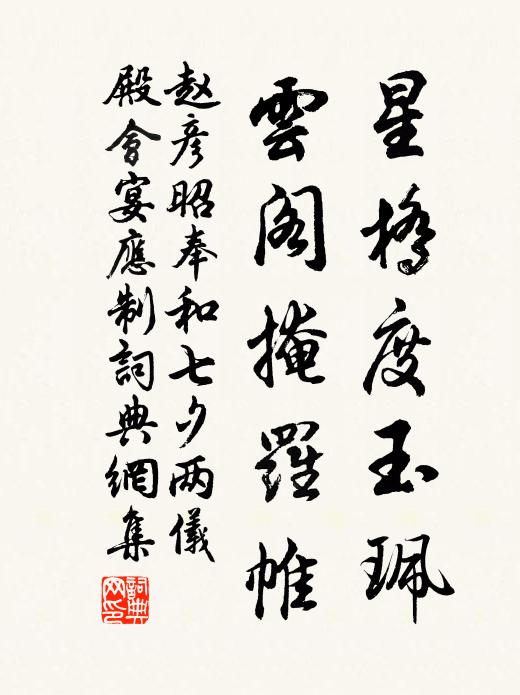 星橋度玉珮
雲阁掩羅帷
赵彦昭奉和七夕两儀
殿會宴應制詞典網集
詞典網印